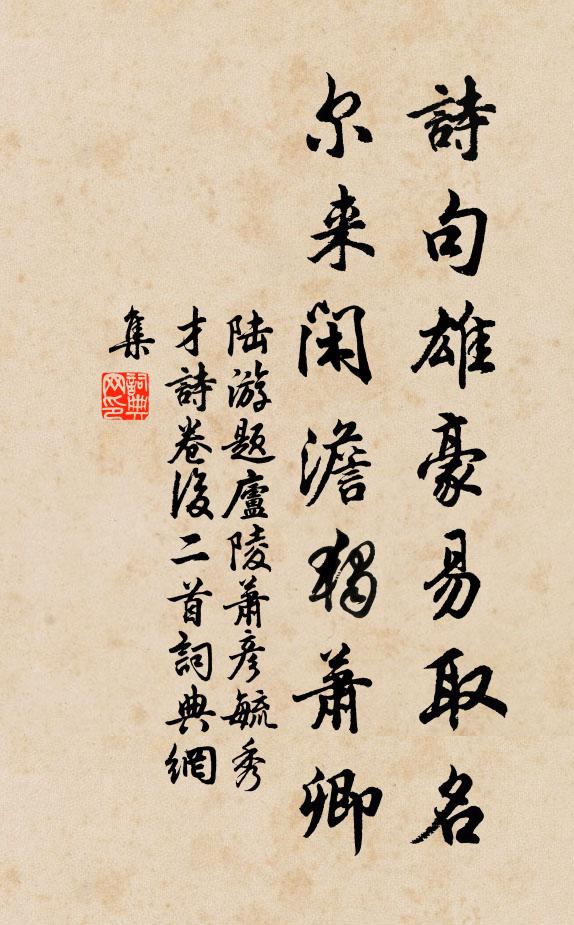 詩句雄豪易取名
尔来闲澹独萧卿
陆游题廬陵萧彦毓秀
才詩卷後二首詞典網
集
詞典網印